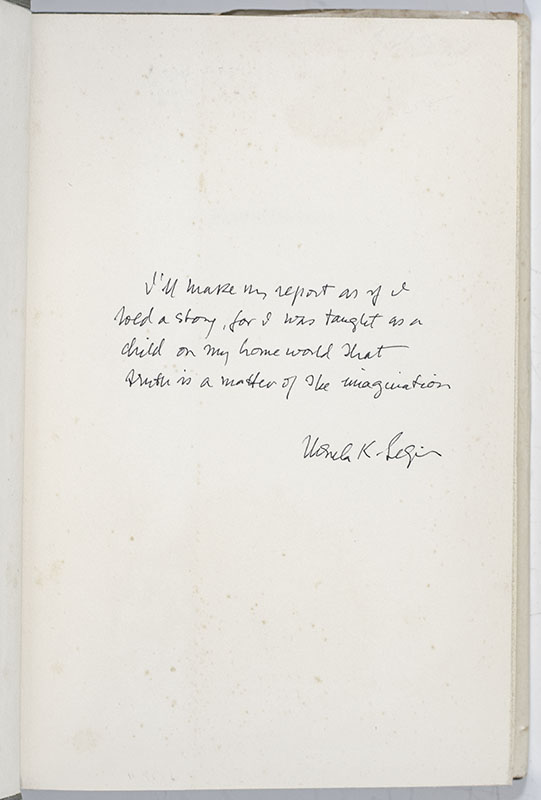 I'll make my report as if I
told a story, for I was taught as a
child on my homeworld that
truth is a matter of the imagination
Ursula K. Le Guin